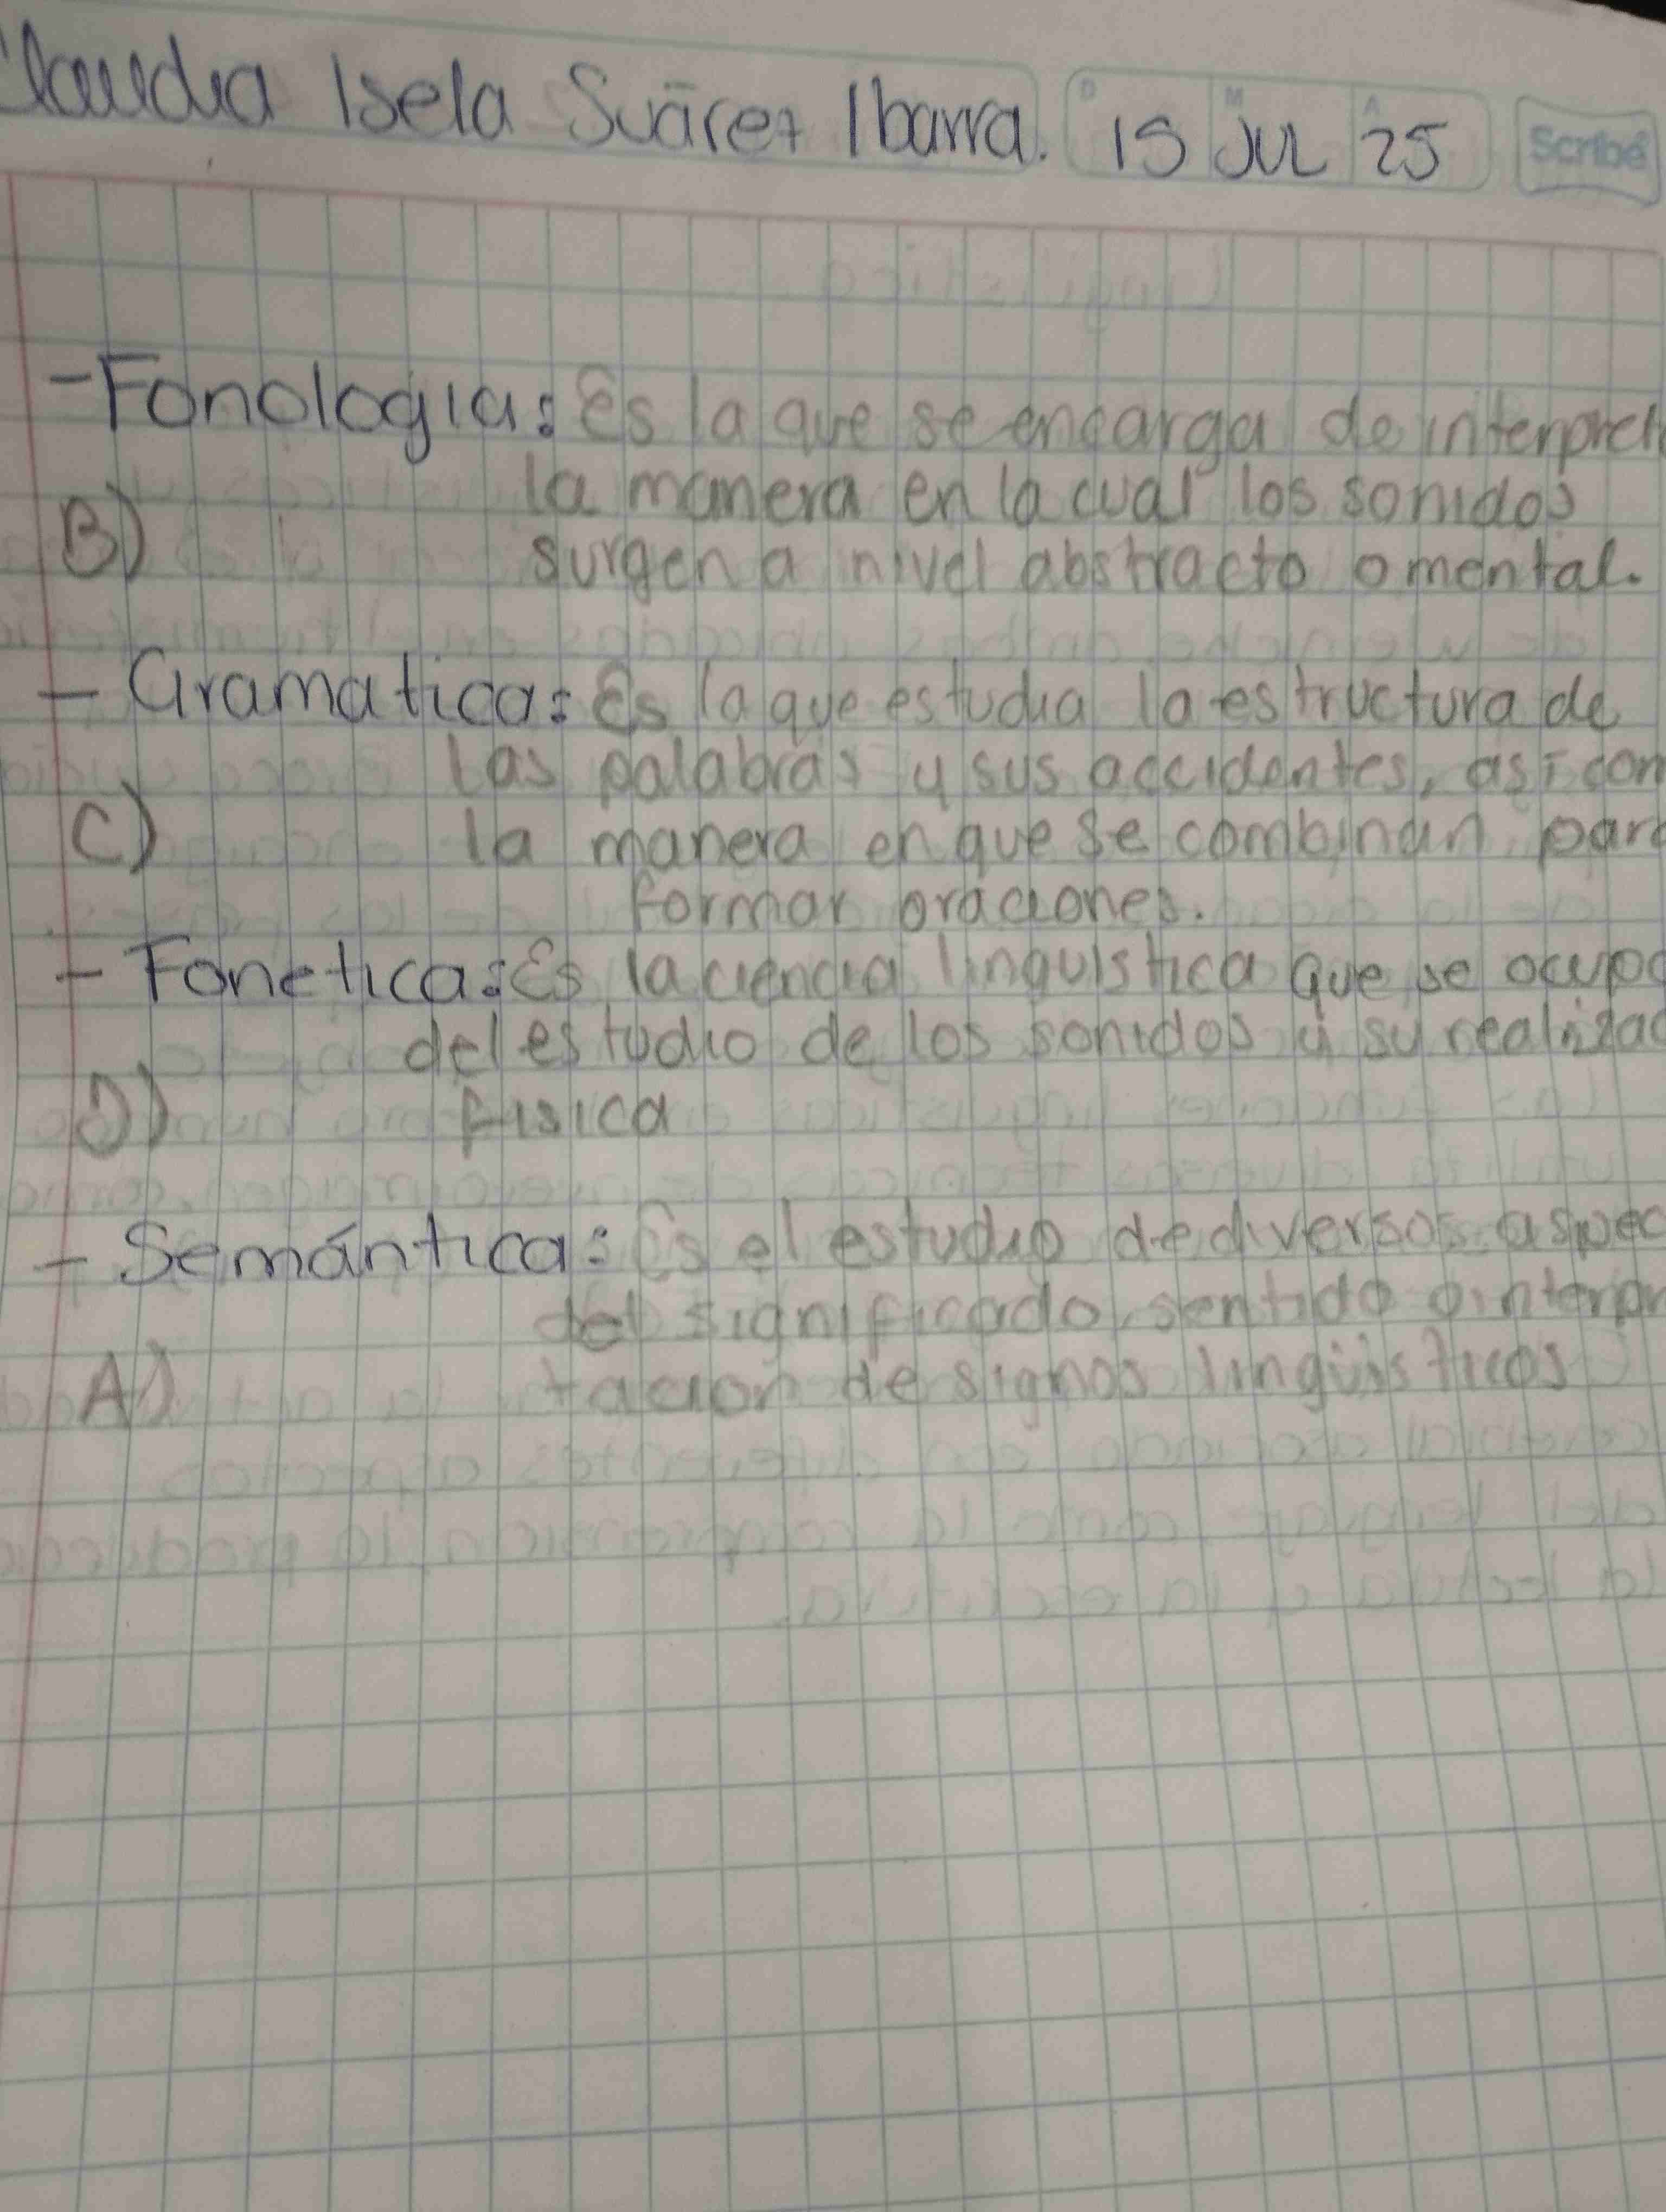 Claudia Isela Suárez Ibarra. D 15 M JUL A 25 Scribe
- Fonologia: Es la que se encarga de interpret
la manera en la cual los sonidos
B)
surgen a nivel abstracto o mental.
- Gramatica: Es la que estudia la estructura de
las palabras y sus accidentes, así com
C) la manera en que se combinan para
formar oraciones.
- Fonetica: Es la ciencia linguistica que se ocupa
del estudio de los sonidos y su realizac
D) fisica
- Semántica: Es el estudio de diversos aspec
del significado, sentido o interpr
A) tacion de signos lingüisticos